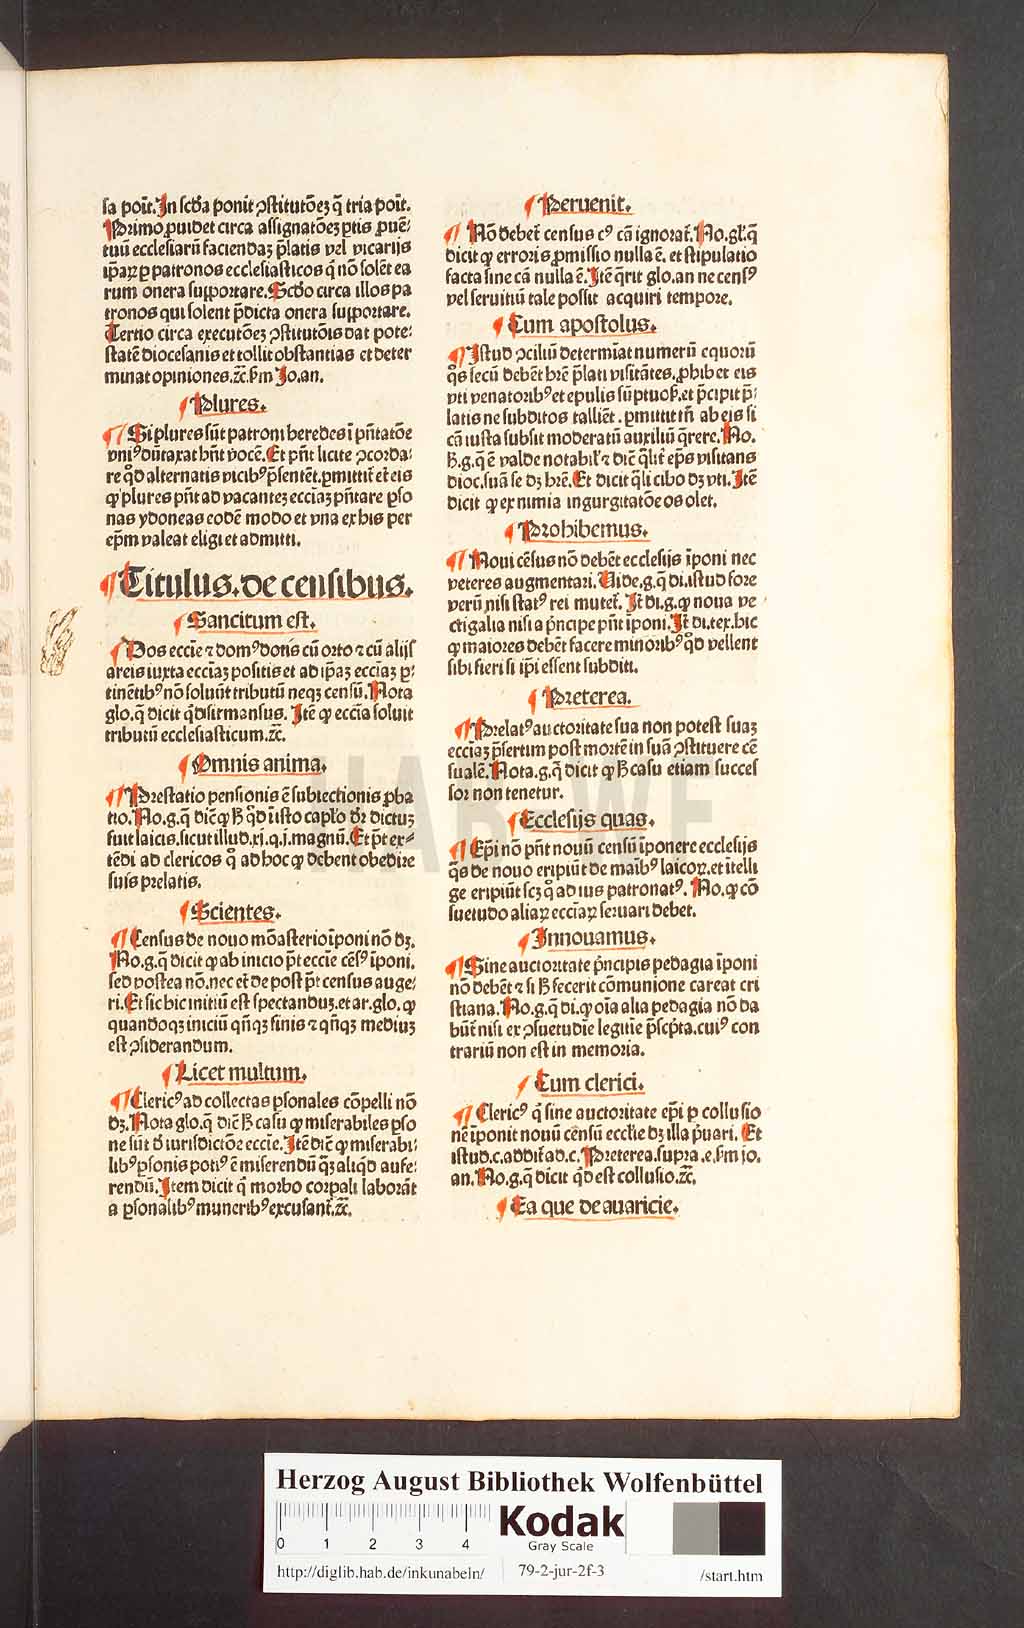 sa poīt. In scd̄a ponit ꝯstitutōeꝫ q̄ tria poīt.
Primo ꝓuidet circa assignatōeꝫ ꝑtis ꝓuē⸗
tuū ecclesiarū faciendaꝫ p̄latis vel vicarijs
ip̄aꝝ ꝑ patronos ecclesiasticos q̄ nō solēt ea
rum onera supportare. Scd̄o circa illos pa
tronos qui solent p̄dicta onera supportare.
Tertio circa executōeꝫ ꝯstitutōis dat pote⸗
statē diocesanis et tollit obstantias et deter
minat opiniones.ꝛc̄. ẜm Jo.an.
¶ Plures.
¶ Si plures sūt patroni heredes ī p̄ntatōe
vniꝰ dūtaxat hn̄t vocē. Et pn̄t licite ꝯcorda⸗
re qd̓ alternatis vicibꝰ p̄sentēt. ꝑmittit̄ et eis
ꝙ plures pn̄t ad vacanteꝫ ecciaꝫ p̄ntare ꝑso
nas ydoneas eodē modo et vna ex his per
ep̄m valeat eligi et admitti.
¶ Titulus. de censibus.
¶ Sancitum est.
¶ Dos eccīe ⁊ domꝰ dotis cū orto ⁊ cū alijs
areis iuxta ecciaꝫ positis et ad ip̄aꝫ ecciaꝫ ꝑ⸗
tinētibꝰ nō soluūt tributū neqꝫ censū. Nota
glo. q̄ dicit qd̓ sit mansus. Itē ꝙ eccīa soluit
tributū ecclesiasticum.ꝛc̄.
¶ Omnis anima.
¶ Prestatio pensionis ē subiectionis ꝓba
tio. No.g. q̄ dic̄ ꝙ ꝗ̄ qd̓ i isto caplo dr̄ dictuꝫ
fuit laicis. sicut illud. xi. q. j. magnū. Et pr̄t ex⸗
tēdi ad clericos q̄ ad hoc ꝙ debent obedire
suis prelatis.
¶ Scientes.
¶ Census de nouo mōasterio īponi nō dꝫ.
No.g. q̄ dicit ꝙ ab inicio pr̄t eccīe cēsꝰ īponi.
sed postea nō. nec et̄ de post pr̄t census auge⸗
ri. Et sic hic initiū est spectanduꝫ. et ar. glo. ꝙ
quandoqꝫ iniciū qn̄qꝫ finis ⁊ qn̄qꝫ mediuꝫ
est ꝯsiderandum.
¶ Licet multum.
¶ Clericꝰ ad collectas ꝑsonales cōpelli nō
dꝫ. Nota glo. q̄ dic̄ ꝗ̄ casu ꝙ miserabiles ꝑso
ne sūt d̓ iurisdictōe eccīe. Itē dic̄ ꝙ miserabi⸗
libꝰ ꝑsonis potiꝰ ē miserendū q̄ꝫ aliqd̓ aufe⸗
rendū. Item dicit q̄ morbo corꝑali laborāt
a ꝑsonalibꝰ muneribꝰ excusant̄.ꝛc̄.
¶ Peruenit.
¶ Nō debet̄ census cꝰ cā ignorat̄. No. gl. q̄
dicit ꝙ erroris ꝓmissio nulla ē. et stipulatio
facta sine cā nulla ē. Itē q̄rit glo. an ne censꝰ
vel seruitiū tale possit acquiri tempore.
¶ Cum apostolus.
¶ Istud ꝯciliū determīat numerū equorū
q̄s secū debēt hr̄e p̄lati visitātes. ꝓhibet eis
vti venatoribꝰ et epulis sūptuoẜ. et p̄cipit p̄⸗
latis ne subditos tallīet. ꝑmittit tn̄ ab eis si
cā iusta subsit moderatū auxiliū q̄rere. No.
ꝗ̄.g. q̄ ē valde notabil̓ ⁊ dic̄ q̄lit̄ ep̄s visitans
dioc. suā se dꝫ hr̄e. Et dicit q̄li cibo dꝫ vti. Itē
dicit ꝙ ex nimia ingurgitatōe os olet.
¶ Prohibemus.
¶ Noui cēsus nō debēt ecclesijs īponi nec
veteres augmentari. Vide. g. q̄ di. istud fore
verū. nisi statꝰ rei mutet̄. It̄ di. g. ꝙ noua ve
ctigalia nisi a p̄ncipe pn̄t īponi. It̄ di. tex. hic
ꝙ maiores debēt facere minoribꝰ qd̓ vellent
sibi fieri si ip̄i essent subditi.
¶ Preterea.
¶ Prelatꝰ auctoritate sua non potest suaꝫ
ecciaꝫ p̄sertim post mortē in suā ꝯstituere cē
sualē. Nota. g. q̄ dicit ꝙ ꝗ̄ casu etiam succes
sor non tenetur.
¶ Ecclesijs quas.
¶ Ep̄i nō pn̄t nouū censū īponere ecclesijs
q̄s de nouo eripiūt de maībꝰ laicoꝝ. et ītelli
ge eripiūt scꝫ q̄ ad ius patronatꝰ. No. ꝙ cō
suetudo aliaꝝ eccīaꝝ seruari debet.
¶ Innouamus.
¶ Sine auctoritate p̄ncipis pedagia īponi
nō debēt ⁊ si ꝗ̄ fecerit cōmunione careat cri
stiana. No.g. q̄ di. ꝙ oīa alia pedagia nō da
būt̄ nisi ex ꝯsuetudīe legitīe p̄scp̄ta. cuiꝰ con
trariū non est in memoria.
¶ Cum clerici.
¶ Clericꝰ q̄ sine auctoritate ep̄i ꝑ collusio
nē īponit nouū cēnsū eccīe dꝫ illa p̓uari. Et
istud. c. addit̄ ad. c. Preterea. supra. e. ẜm jo.
an. No.g. q̄ dicit qd̓ est collusio.ꝛc̄.
¶ Ea que de auaricie.
HAB-WF
Herzog August Bibliothek Wolfenbüttel
0 1 2 3 4
Kodak
Gray Scale
http://diglib.hab.de/inkunabeln/ 79-2-jur-2f-3 /start.htm